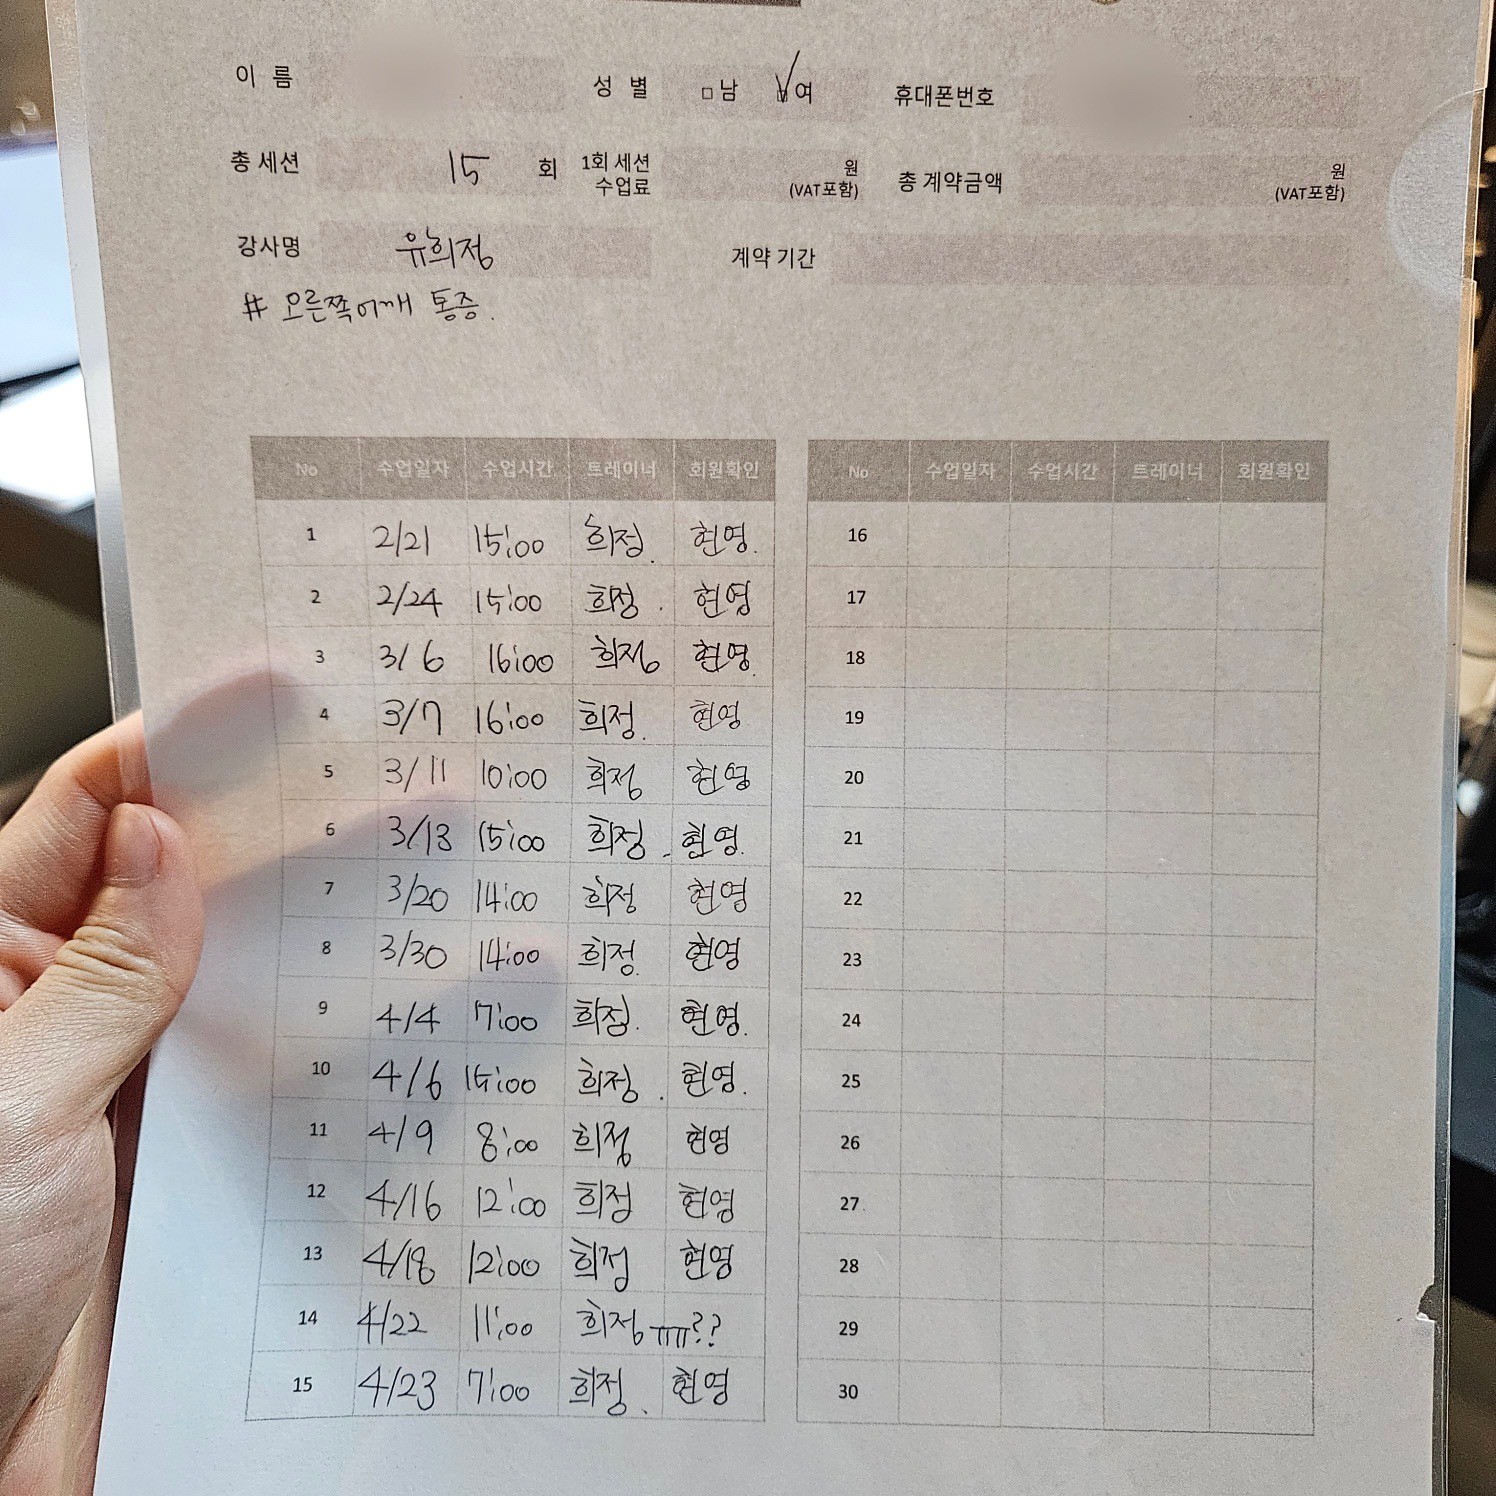 이 름 성 별 □남 ☑여 휴대폰번호
총 세션 15 회 1회 세션 수업료 원 (VAT포함) 총 계약금액 원 (VAT포함)
강사명 유희정 계약 기간
# 오른쪽어깨 통증.
No 수업일자 수업시간 트레이너 회원확인 No 수업일자 수업시간 트레이너 회원확인
1 2/21 15:00 희정. 현영. 16
2 2/24 15:00 희정. 현영 17
3 3/6 16:00 희정 현영. 18
4 3/7 16:00 희정. 현영 19
5 3/11 10:00 희정 현영 20
6 3/13 15:00 희정. 현영. 21
7 3/20 14:00 희정 현영 22
8 3/30 14:00 희정. 현영 23
9 4/4 7:00 희정. 현영. 24
10 4/6 15:00 희정. 현영. 25
11 4/9 8:00 희정 현영 26
12 4/16 12:00 희정 현영 27
13 4/18 12:00 희정 현영 28
14 4/22 11:00 희정 ㅠㅠ?? 29
15 4/23 7:00 희정. 현영 30